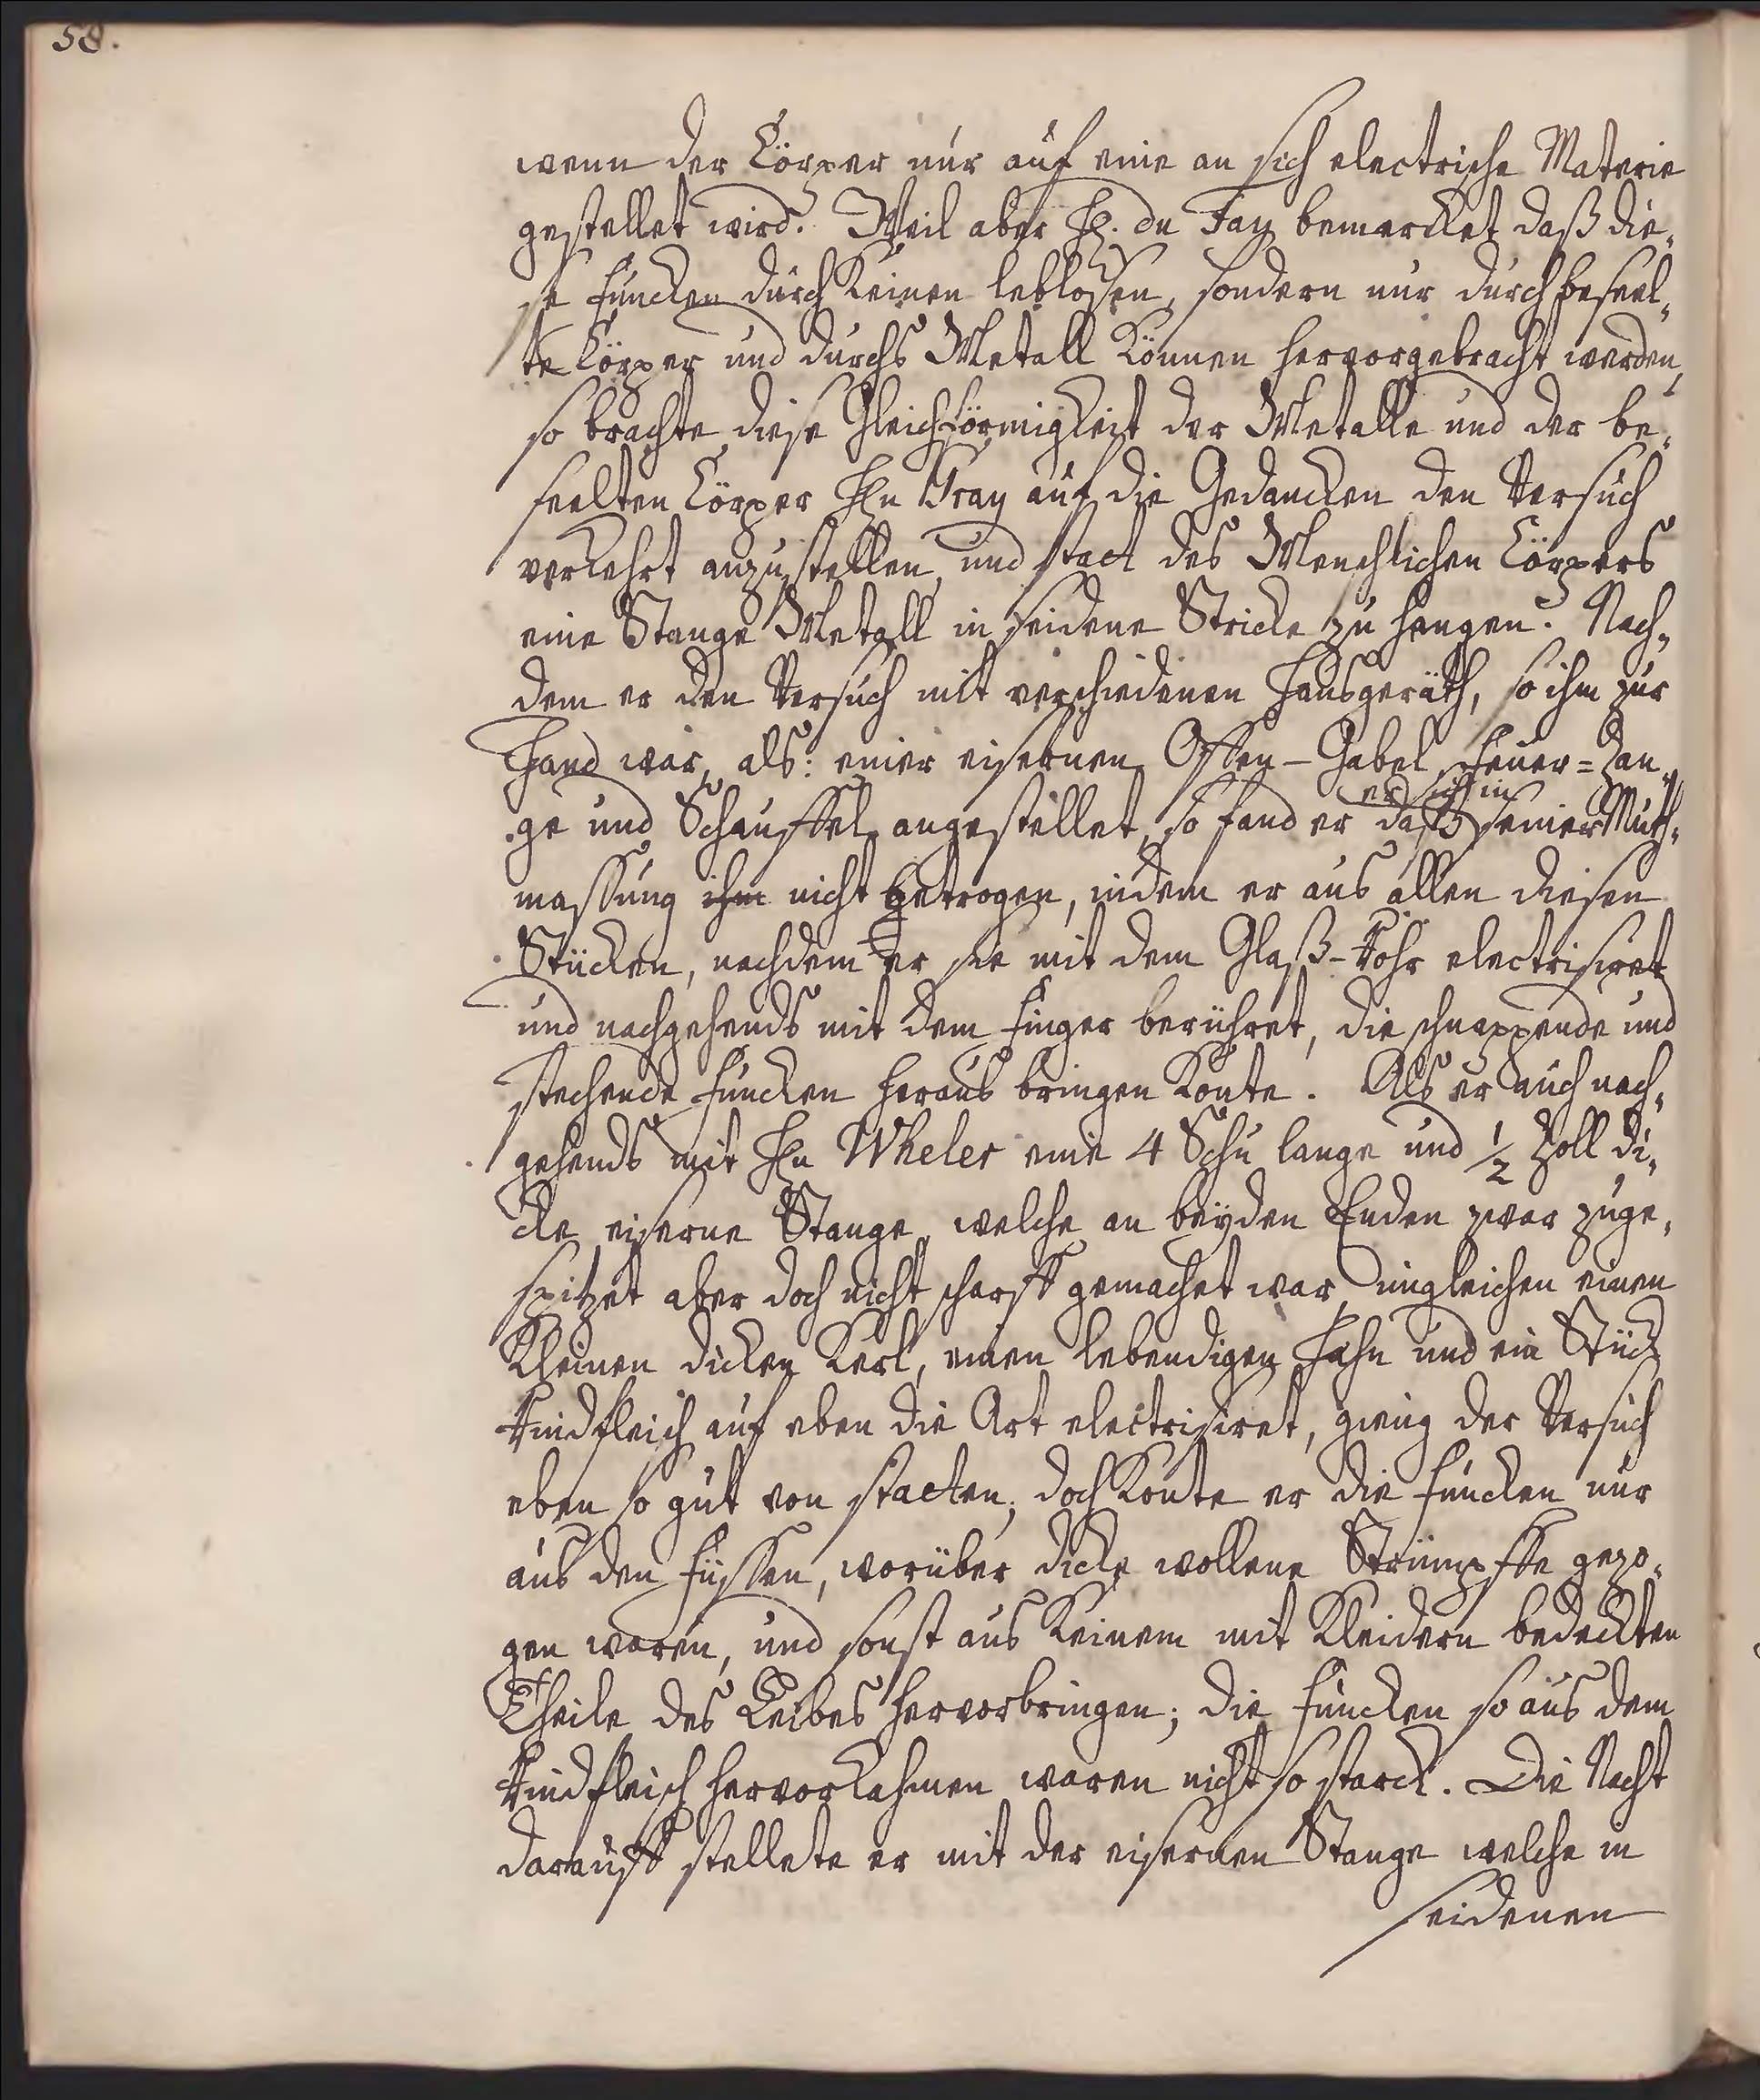 58.
wenn der Cörper nur auf eine an sich electrische Materie
gestellet wird. Weil aber H. du Fay bemercket daß die-
se Funcken durch keinen leblosen, sondern nur durch beseel-
te Cörper und durchs Metall können hervorgebracht werden,
so brachte diese Gleichförmigkeit der Metalle und der be-
seelten Cörper Hn Gray auf die Gedancken den Versuch
verkehrt anzustellen, und statt des Menschlichen Cörpers
eine Stange Metall in seidene Stricke zu hengen. Nach-
dem er den Versuch mit verschiedenen Hausgeräth, so ihm zur
Hand war, als: einer eisernen Offen-Gabel, Feuer=Zan-
er sich in
ge und Schauffel angestellet, so fand er daß seiner Muth-
massung ihm nicht betrogen, indem er aus allen diesen
Stücken, nachdem er sie mit dem Glaß-Rohr electrisiret
und nachgehends mit dem Finger berühret, die schnappende und
stechende Funcken heraus bringen konte. Als er auch nach-
gehends mit Hn Wheler eine 4 Schu lange und 1/2 Zoll di-
cke eiserne Stange, welche an beyden Enden zwar zuge-
spitzet aber doch nicht scharff gemachet war, ingleichen einen
kleinen dicken Kerl, einen lebendigen Hahn und ein Stück
Rindfleisch auf eben die Art electrisiret, gieng der Versuch
eben so gut von statten; doch konte er die Funcken nur
aus den Füssen, worüber dicke wollene Strümpffe gezo-
gen waren, und sonst aus keinem mit Kleidern bedeckten
Theile des Leibes hervorbringen; die Funcken so aus dem
Rindfleisch hervorkahmen waren nicht so starck. Die Nacht
darauff stellete er mit der eisernen Stange welche in
seidenen